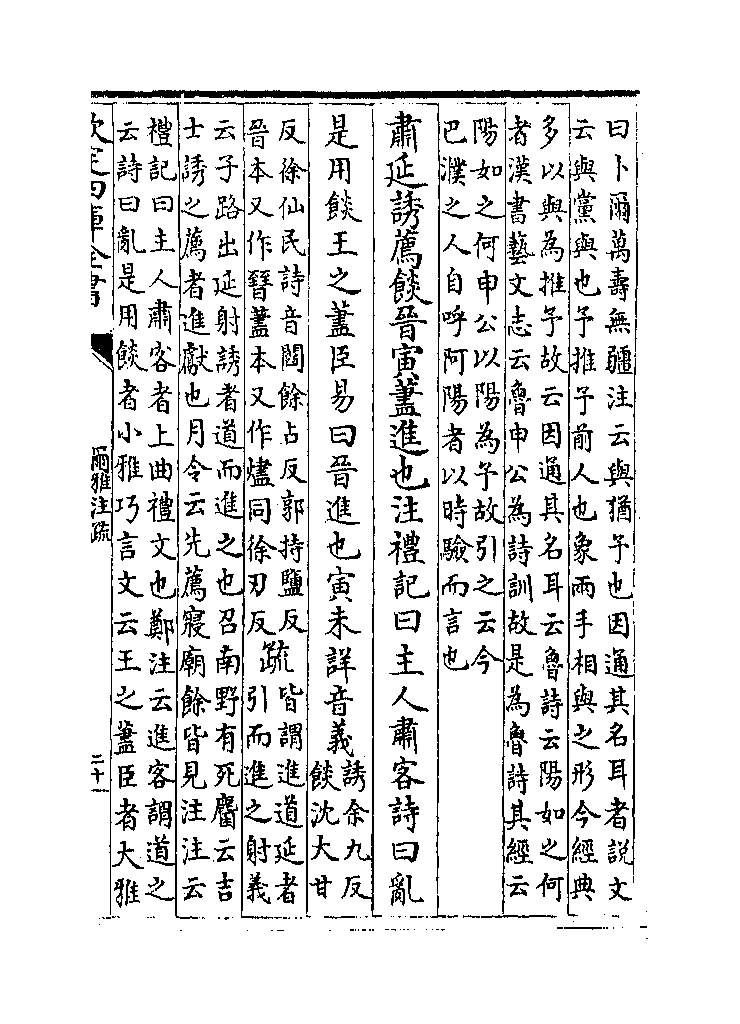 曰卜爾萬壽無疆注云與猶予也因通其名耳者說文
云與黨與也予推予前人也象兩手相與之形今經典
多以與為推予故云因通其名耳云魯詩云陽如之何
者漢書藝文志云魯申公為詩訓故是為魯詩其經云
陽如之何申公以陽為予故引之云今
巴濮之人自呼阿陽者以時驗而言也
肅延誘薦餤晉寅藎進也注禮記曰主人肅客詩曰亂
是用餤王之藎臣易曰晉進也寅未詳音義
誘余九反
餤沈大甘
反徐仙民詩音閻餘占反郭持鹽反
晉本又作晉藎本又作燼同徐刃反
疏
皆謂進道延者
引而進之射義
云子路出延射誘者道而進之也召南野有死麕云吉
士誘之薦者進獻也月令云先薦寢廟餘皆見注注云
禮記曰主人肅客者上曲禮文也鄭注云進客謂道之
云詩曰亂是用餤者小雅巧言文云王之藎臣者大雅
欽定四庫全書
爾雅注疏
二十一